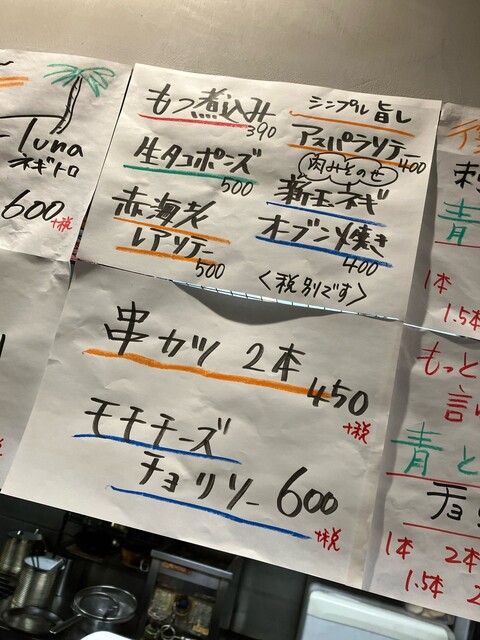 luna
ネギトロ
600
+税
もつ煮込み
390
生タコポンズ
500
赤海老
レアソテー
500
シンプル旨し
アスパラソテー
400
肉みそのせ
新玉ネギ
オーブン焼き
400
<税別です>
串カツ 2本
450
+税
モチチーズ
チョリソー 600
+税
青
1本
1.5本
もっと
青と
1本 2本
1.5本 2